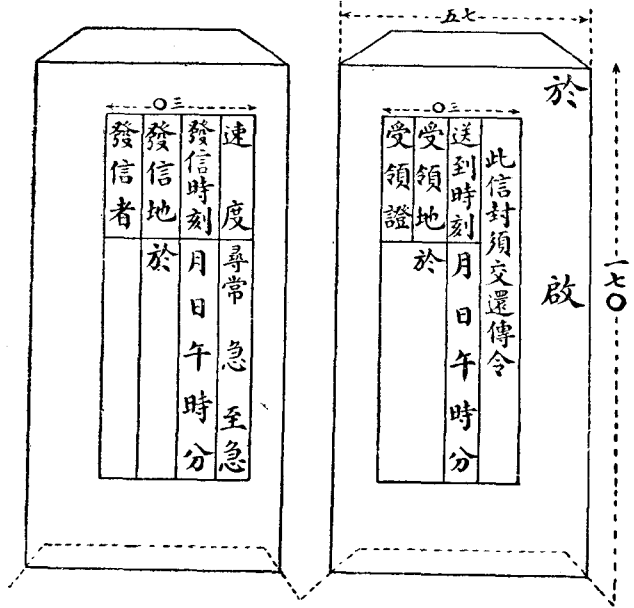 七五
一七〇
於 啟
三〇
此信封須交還傳令
送到時刻 月日午時分
受領地 於
受領證
三〇
速度 尋常 急 至急
發信時刻 月日午時分
發信地 於
發信者